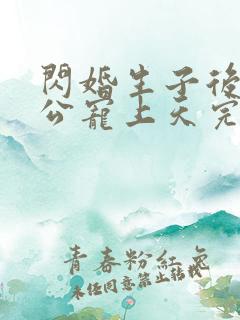 閃婚生子後
公寵上天完
青春粉紅色
未經同意禁止轉載